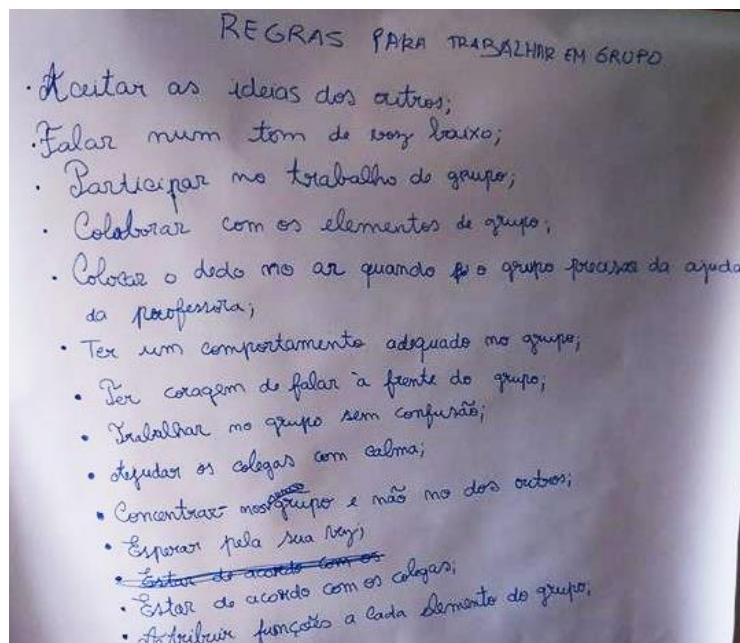 REGRAS PARA TRABALHAR EM GRUPO
· Aceitar as ideias dos outros;
· Falar num tom de voz baixo;
· Participar no trabalho do grupo;
· Colaborar com os elementos de grupo;
· Colocar o dedo no ar quando o grupo precisar da ajuda
da professora;
· Ter um comportamento adequado no grupo;
· Ter coragem de falar à frente do grupo;
· Trabalhar no grupo sem confusão;
· Ajudar os colegas com calma;
· Concentrar grupo e não no dos outros;
· Esperar pela sua vez;
· Estar de acordo com os
· Estar de acordo com os colegas;
· Atribuir funções a cada elemento do grupo;